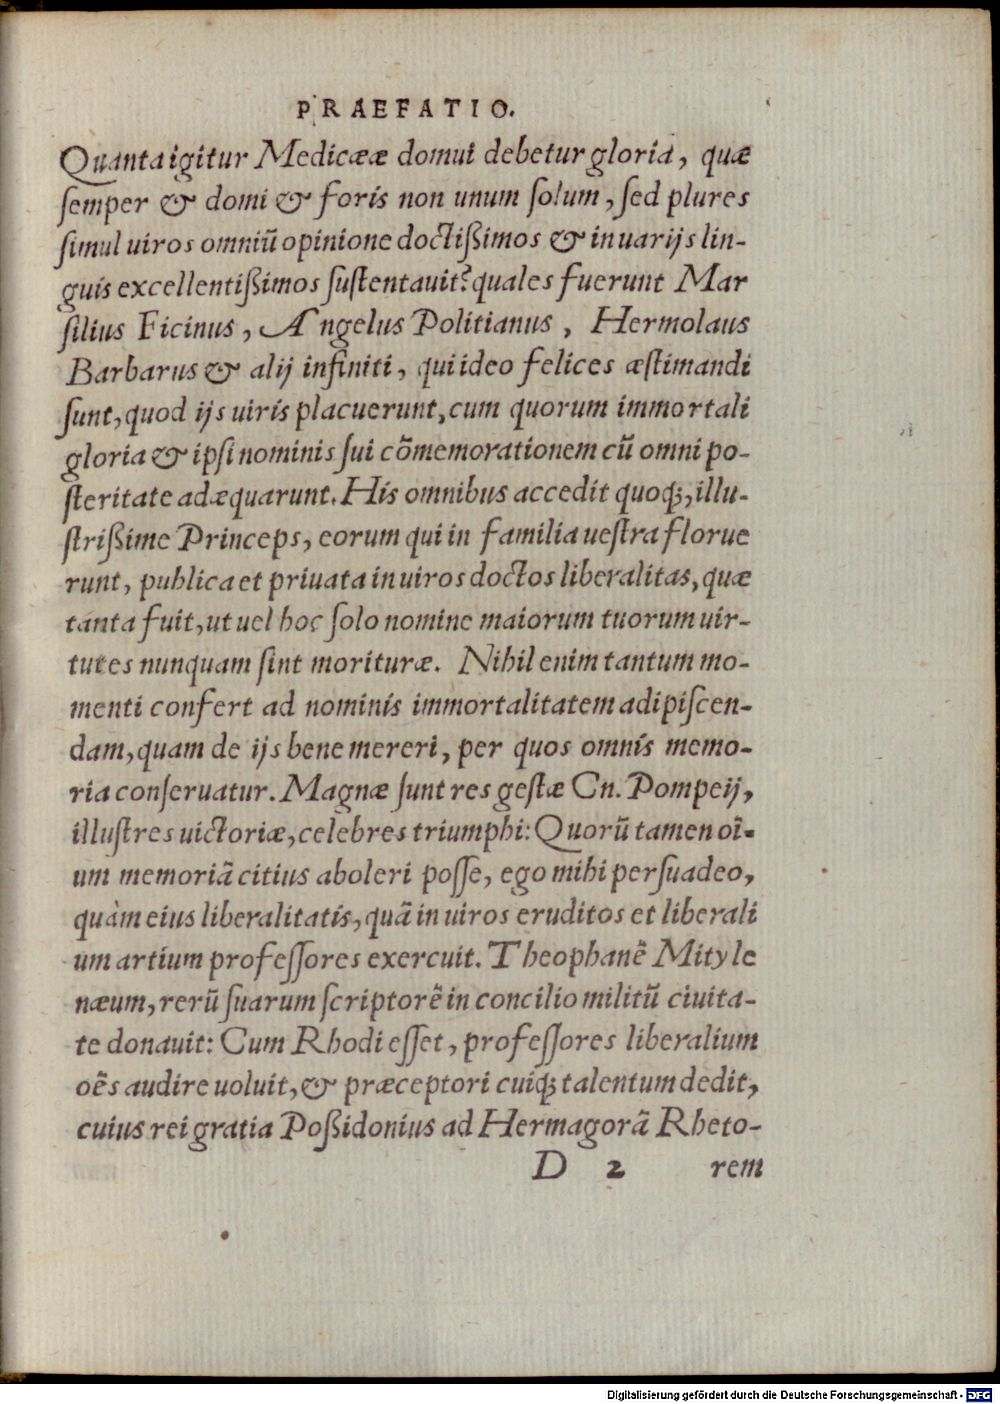 PRAEFATIO.
Quanta igitur Medicææ domui debetur gloria, quæ
semper & domi & foris non unum solum, sed plures
simul uiros omniū opinione doctißimos & in uarijs lin-
guis excellentißimos sustentauit? quales fuerunt Mar
silius Ficinus, Angelus Politianus, Hermolaus
Barbarus & alij infiniti, qui ideo felices æstimandi
sunt, quod ijs uiris placuerunt, cum quorum immortali
gloria & ipsi nominis sui cõmemorationem cū omni po-
steritate adæquarunt. His omnibus accedit quoq;, illu-
strißime Princeps, eorum qui in familia uestra florue
runt, publica et priuata in uiros doctos liberalitas, quæ
tanta fuit, ut uel hoc solo nomine maiorum tuorum uir-
tutes nunquam sint morituræ. Nihil enim tantum mo-
menti confert ad nominis immortalitatem adipiscen-
dam, quam de ijs bene mereri, per quos omnis memo-
ria conseruatur. Magnæ sunt res gestæ Cn. Pompeij,
illustres uictoriæ, celebres triumphi: Quorū tamen oī-
um memoriā citius aboleri posse, ego mihi persuadeo,
quàm eius liberalitatis, quā in uiros eruditos et liberali
um artium professores exercuit. Theophanē Mityle
næum, rerū suarum scriptorē in concilio militū ciuita-
te donauit: Cum Rhodi esset, professores liberalium
oēs audire uoluit, & præceptori cuiq; talentum dedit,
cuius rei gratia Poßidonius ad Hermagorā Rheto-
D 2 rem
Digitalisierung gefördert durch die Deutsche Forschungsgemeinschaft - DFG